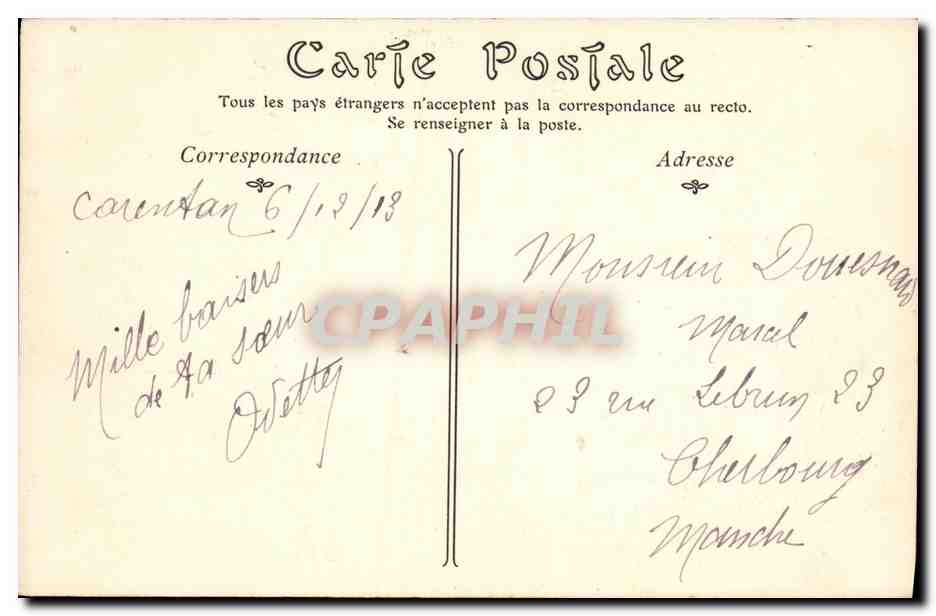 Carte Postale
Tous les pays étrangers n'acceptent pas la correspondance au recto.
Se renseigner à la poste.
Correspondance
Carentan 6/12/13
Mille baisers
de ta sœur
Odette
CPAPHIL
Adresse
Monsieur Douesnard
Marcel
23 rue Lebrun 23
Cherbourg
Manche